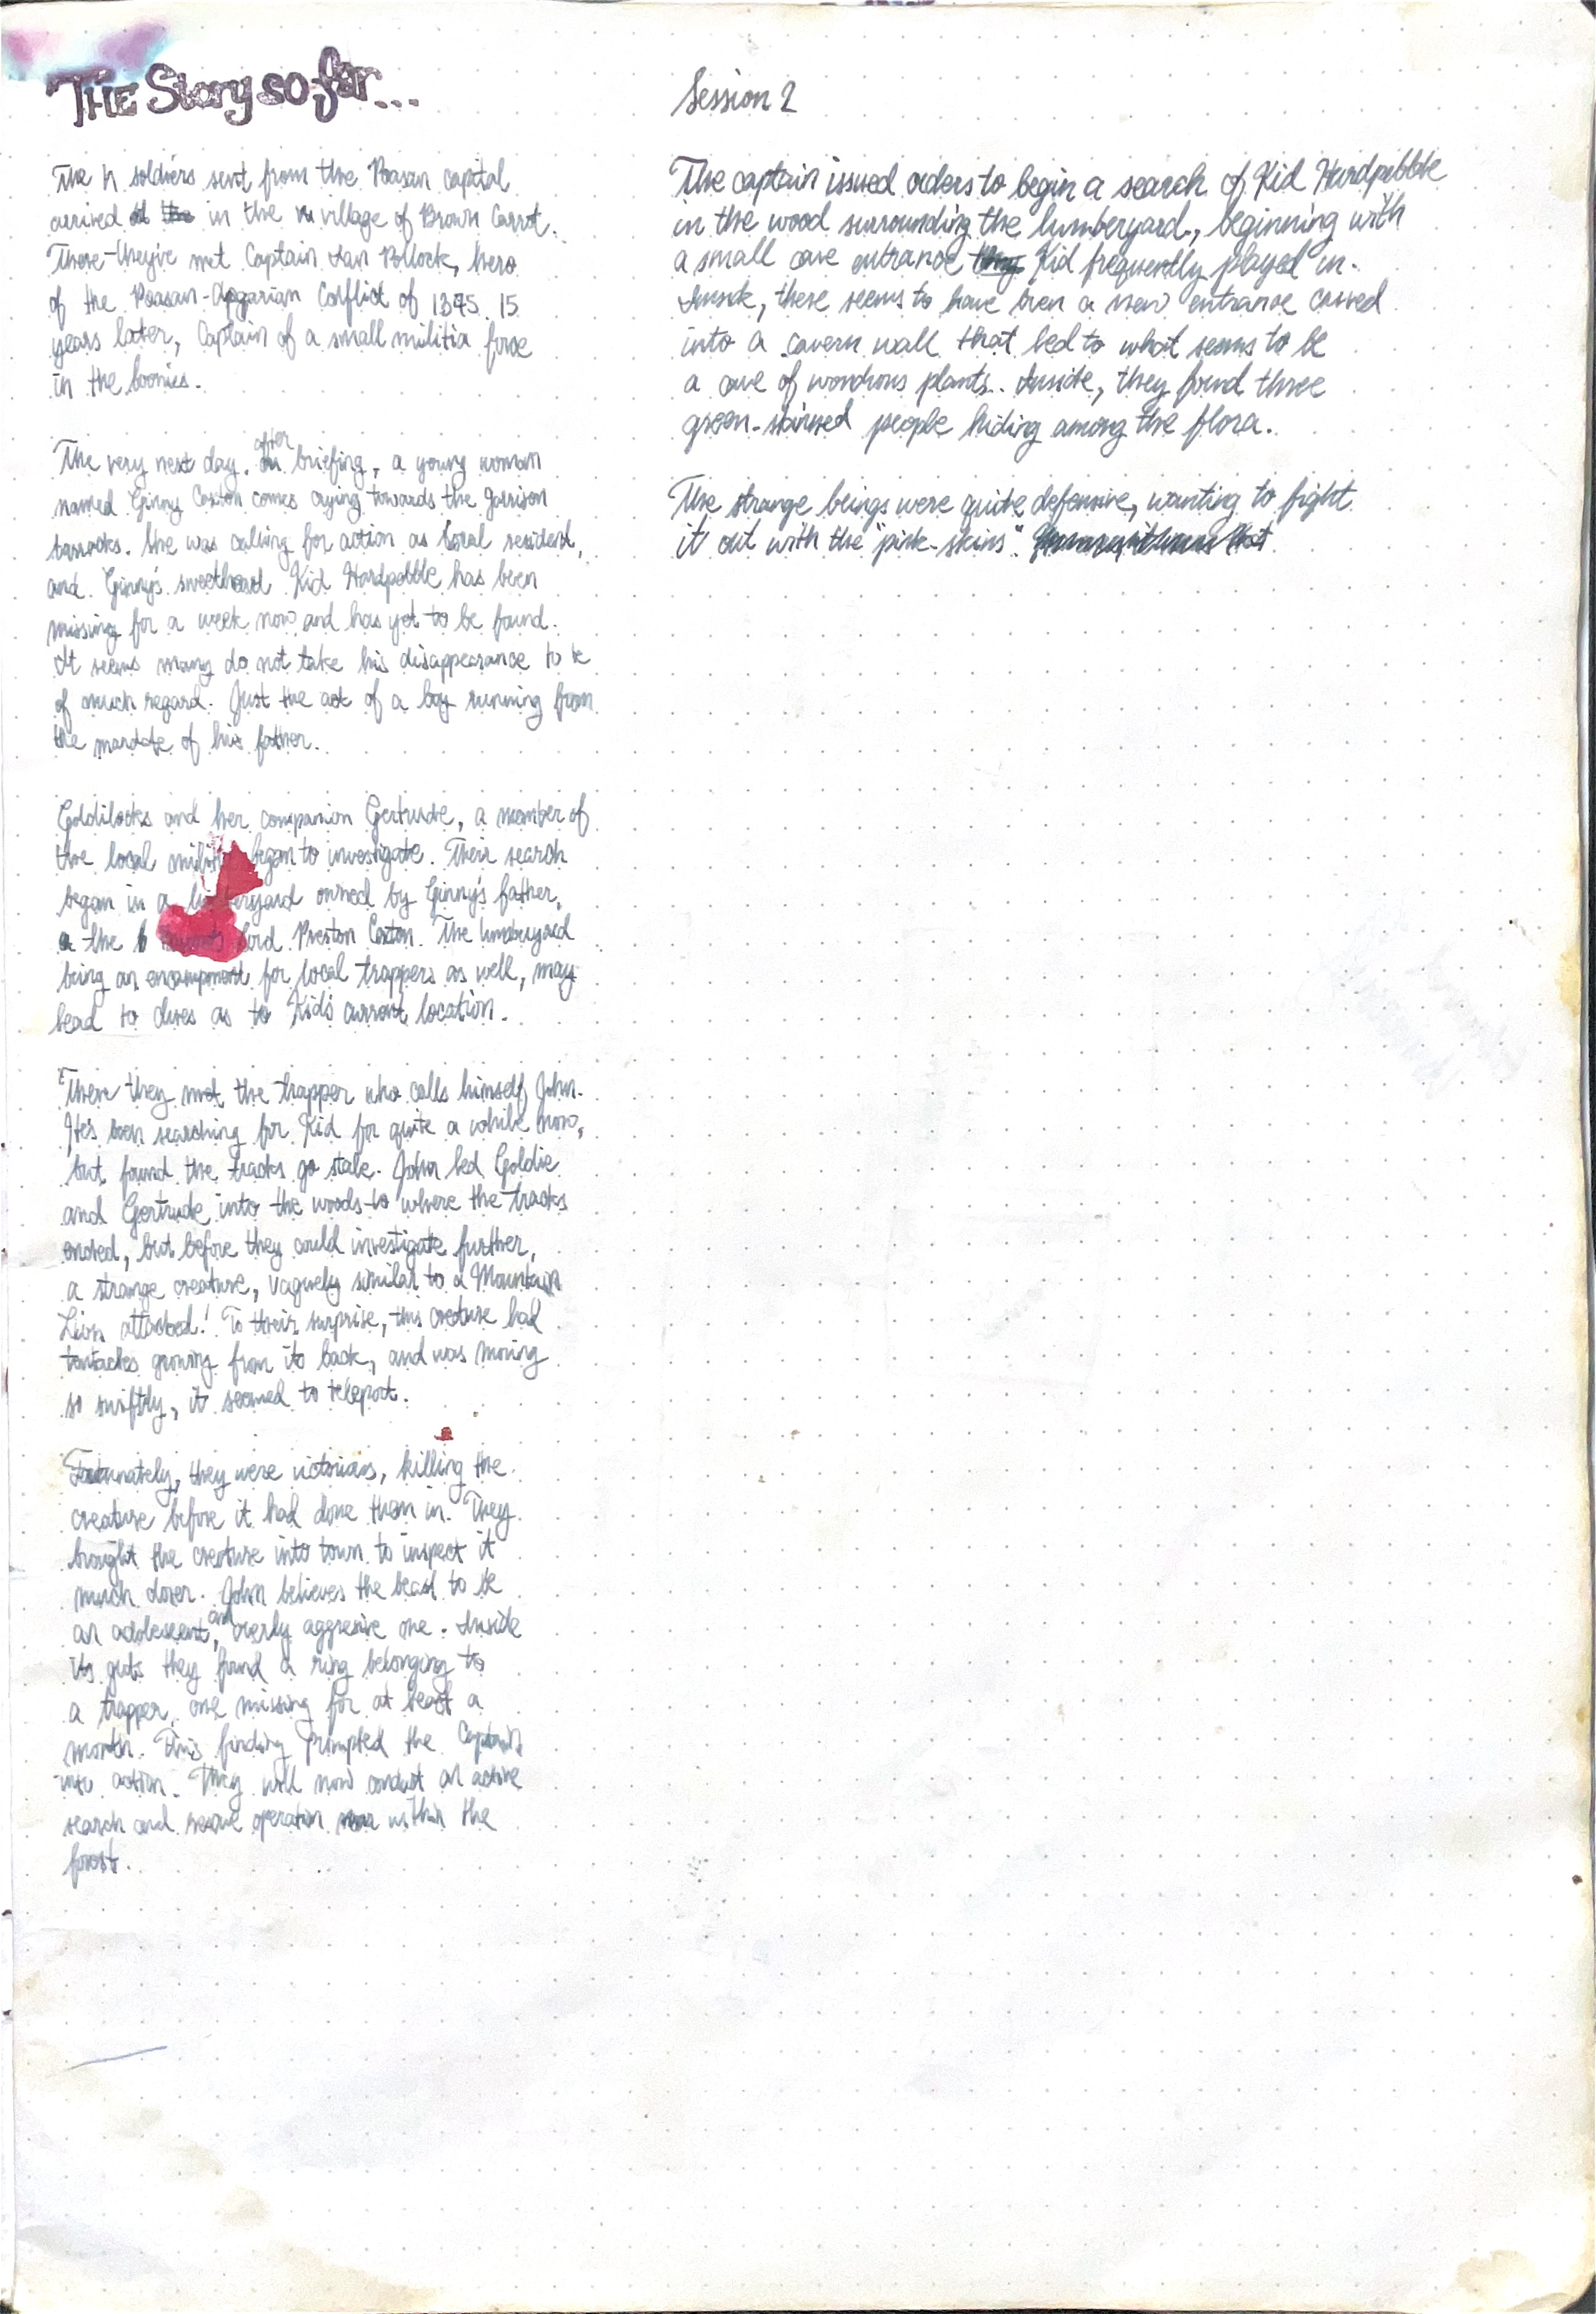 THE Story so far...
The soldiers sent from the Poasan capital
arrived in the village of Brown Carrot.
There they've met Captain Ian Pollock, hero
of the Poasan-Apgarian Conflict of 1375. 15
years later, Captain of a small militia force
in the boonies.
The very next day, after briefing, a young woman
named Ginny Caxton comes crying towards the garrison
barracks. She was calling for action as local resident,
and Ginny's sweetheart Kid Hardpebble has been
missing for a week now and has yet to be found.
It seems many do not take his disappearance to be
of much regard. Just the act of a boy running from
the mandate of his father.
Goldilocks and her companion Gertrude, a member of
the local began to investigate. Their search
began in a owned by Ginny's father,
the Lord Preston Caxton. The lumberyard
being an encampment for local trappers as well, may
lead to clues as to Kid's current location.
There they met the trapper who calls himself John.
He's been searching for Kid for quite a while now,
but found the tracks go stale. John led Goldie
and Gertrude into the woods to where the tracks
ended, but before they could investigate further,
a strange creature, vaguely similar to a Mountain
Lion attacked! To their surprise, this creature had
tentacles growing from its back, and was moving
so swiftly, it seemed to teleport.
Fortunately, they were victorious, killing the
creature before it had done them in. They
brought the creature into town to inspect it
much closer. John believes the beast to be
an adolescent, and overly aggresive one. Inside
its guts they found a ring belonging to
a trapper, one missing for at least a
month. This finding prompted the Captain
into action. They will now conduct an active
search and rescue operation within the
forest.
Session 2
The captain issued orders to begin a search of Kid Hardpebble
in the wood surrounding the lumberyard, beginning with
a small cave entrance Kid frequently played in.
Inside, there seems to have been a new entrance carved
into a cavern wall that led to what seems to be
a cave of wondrous plants. Inside, they found three
green-skinned people hiding among the flora.
The strange beings were quite defensive, wanting to fight
it out with the "pink-skins".